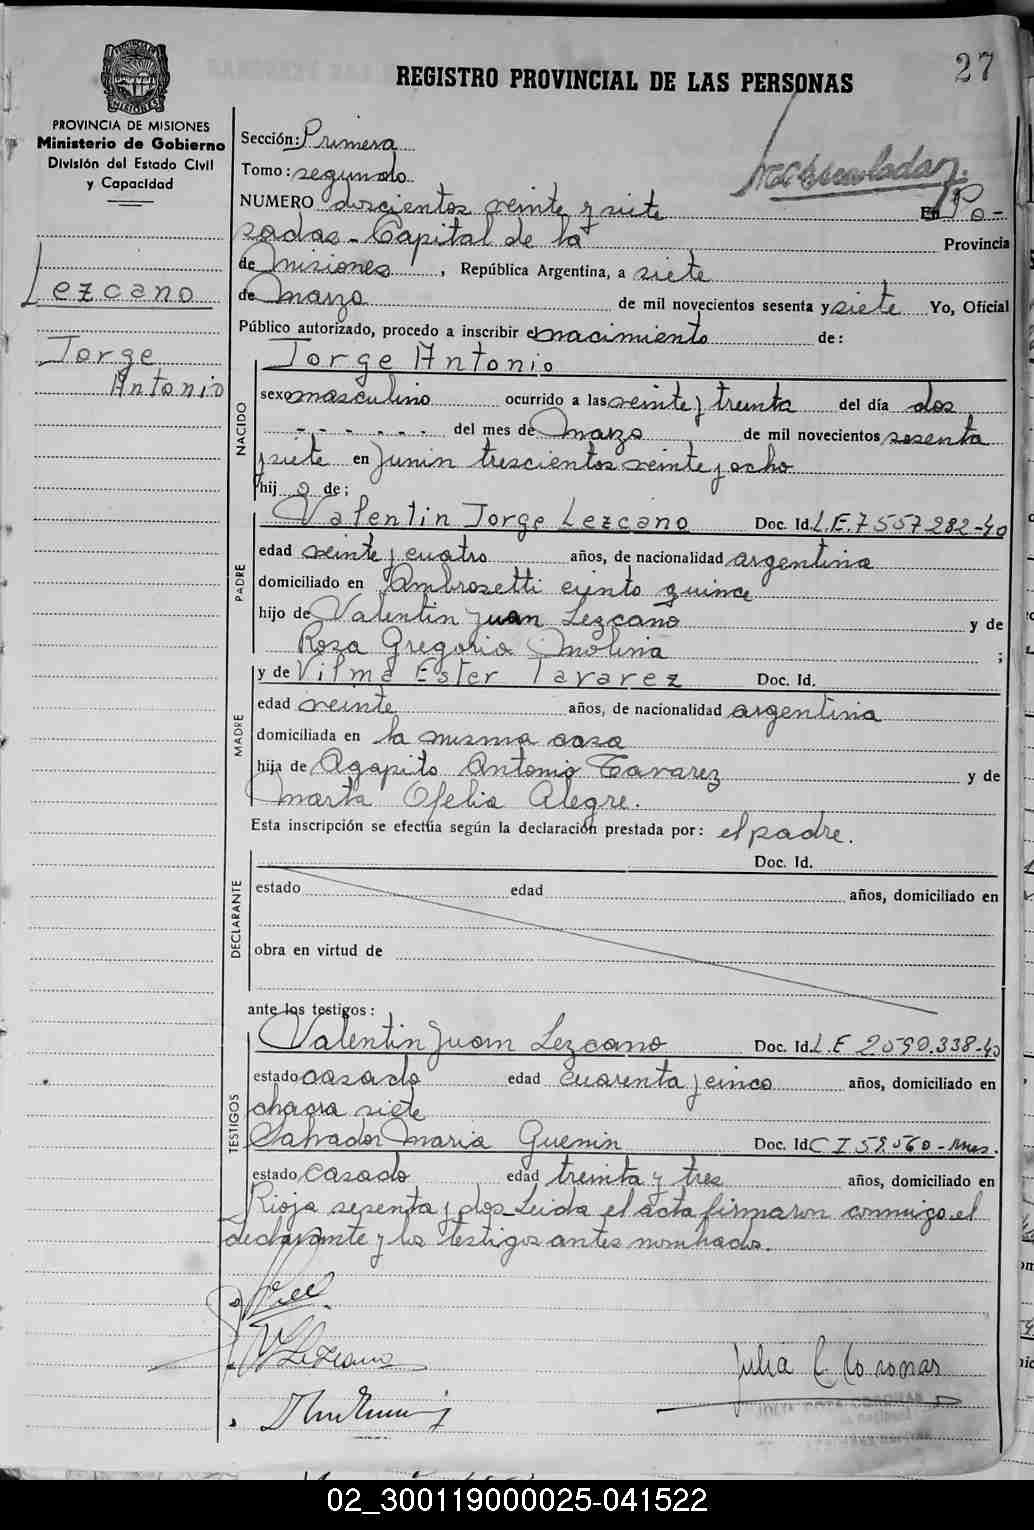 27
REGISTRO PROVINCIAL DE LAS PERSONAS
PROVINCIA DE MISIONES
Ministerio de Gobierno
División del Estado Civil
y Capacidad
Lezcano
Jorge
Antonio
Sección: Primera
Tomo: segundo
NUMERO doscientos veinte y siete En Po-
sadas - Capital de la Provincia
de Misiones, República Argentina, a siete
de Marzo de mil novecientos sesenta y siete Yo, Oficial
Público autorizado, procedo a inscribir el nacimiento de:
NACIDO
Jorge Antonio
sexo masculino ocurrido a las veinte y treinta del día dos
- - - - - - del mes de Marzo de mil novecientos sesenta
y siete en Junin trescientos veinte y ocho
hij o de:
PADRE
Valentin Jorge Lezcano Doc. Id. L.E. 7557282-40
edad veinte y cuatro años, de nacionalidad argentina
domiciliado en Ambrosetti ciento quince
hijo de Valentin Juan Lezcano y de
Rosa Gregoria Molina ;
MADRE
y de Vilma Ester Tavarez Doc. Id.
edad veinte años, de nacionalidad argentina
domiciliada en la misma casa
hija de Agapito Antonio Tavarez y de
Marta Ofelia Alegre.
Esta inscripción se efectúa según la declaración prestada por: el padre.
DECLARANTE
Doc. Id.
estado edad años, domiciliado en
obra en virtud de
ante los testigos:
TESTIGOS
Valentin Juan Lezcano Doc. Id. L.E 2590.338-40
estado casado edad cuarenta y cinco años, domiciliado en
chacra siete
Salvador Maria Guenin Doc. Id. C I 59.060-Mnes.
estado casado edad treinta y tres años, domiciliado en
Rioja sesenta y dos_Leida el acta firmaron conmigo el
declarante y los testigos antes nombrados.
V Lezcano
Julia C Coronas
02_300119000025-041522